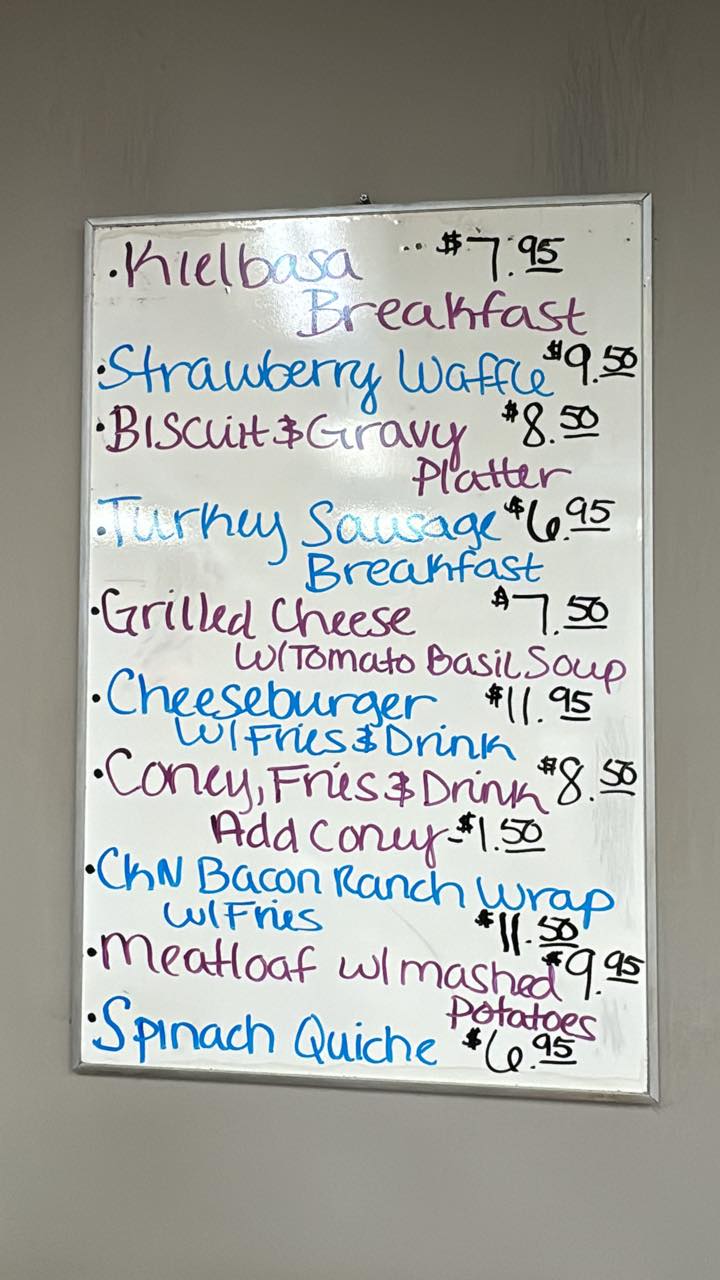 ·Kielbasa $7.95
Breakfast
·Strawberry Waffle $9.50
·Biscuit & Gravy $8.50
Platter
·Turkey Sausage $6.95
Breakfast
·Grilled Cheese $7.50
W/Tomato Basil Soup
·Cheeseburger $11.95
W/Fries & Drink
·Coney, Fries & Drink $8.50
Add Coney-$1.50
·CKN Bacon Ranch Wrap
W/Fries $11.50
·Meatloaf w/mashed $9.95
Potatoes
·Spinach Quiche $6.95